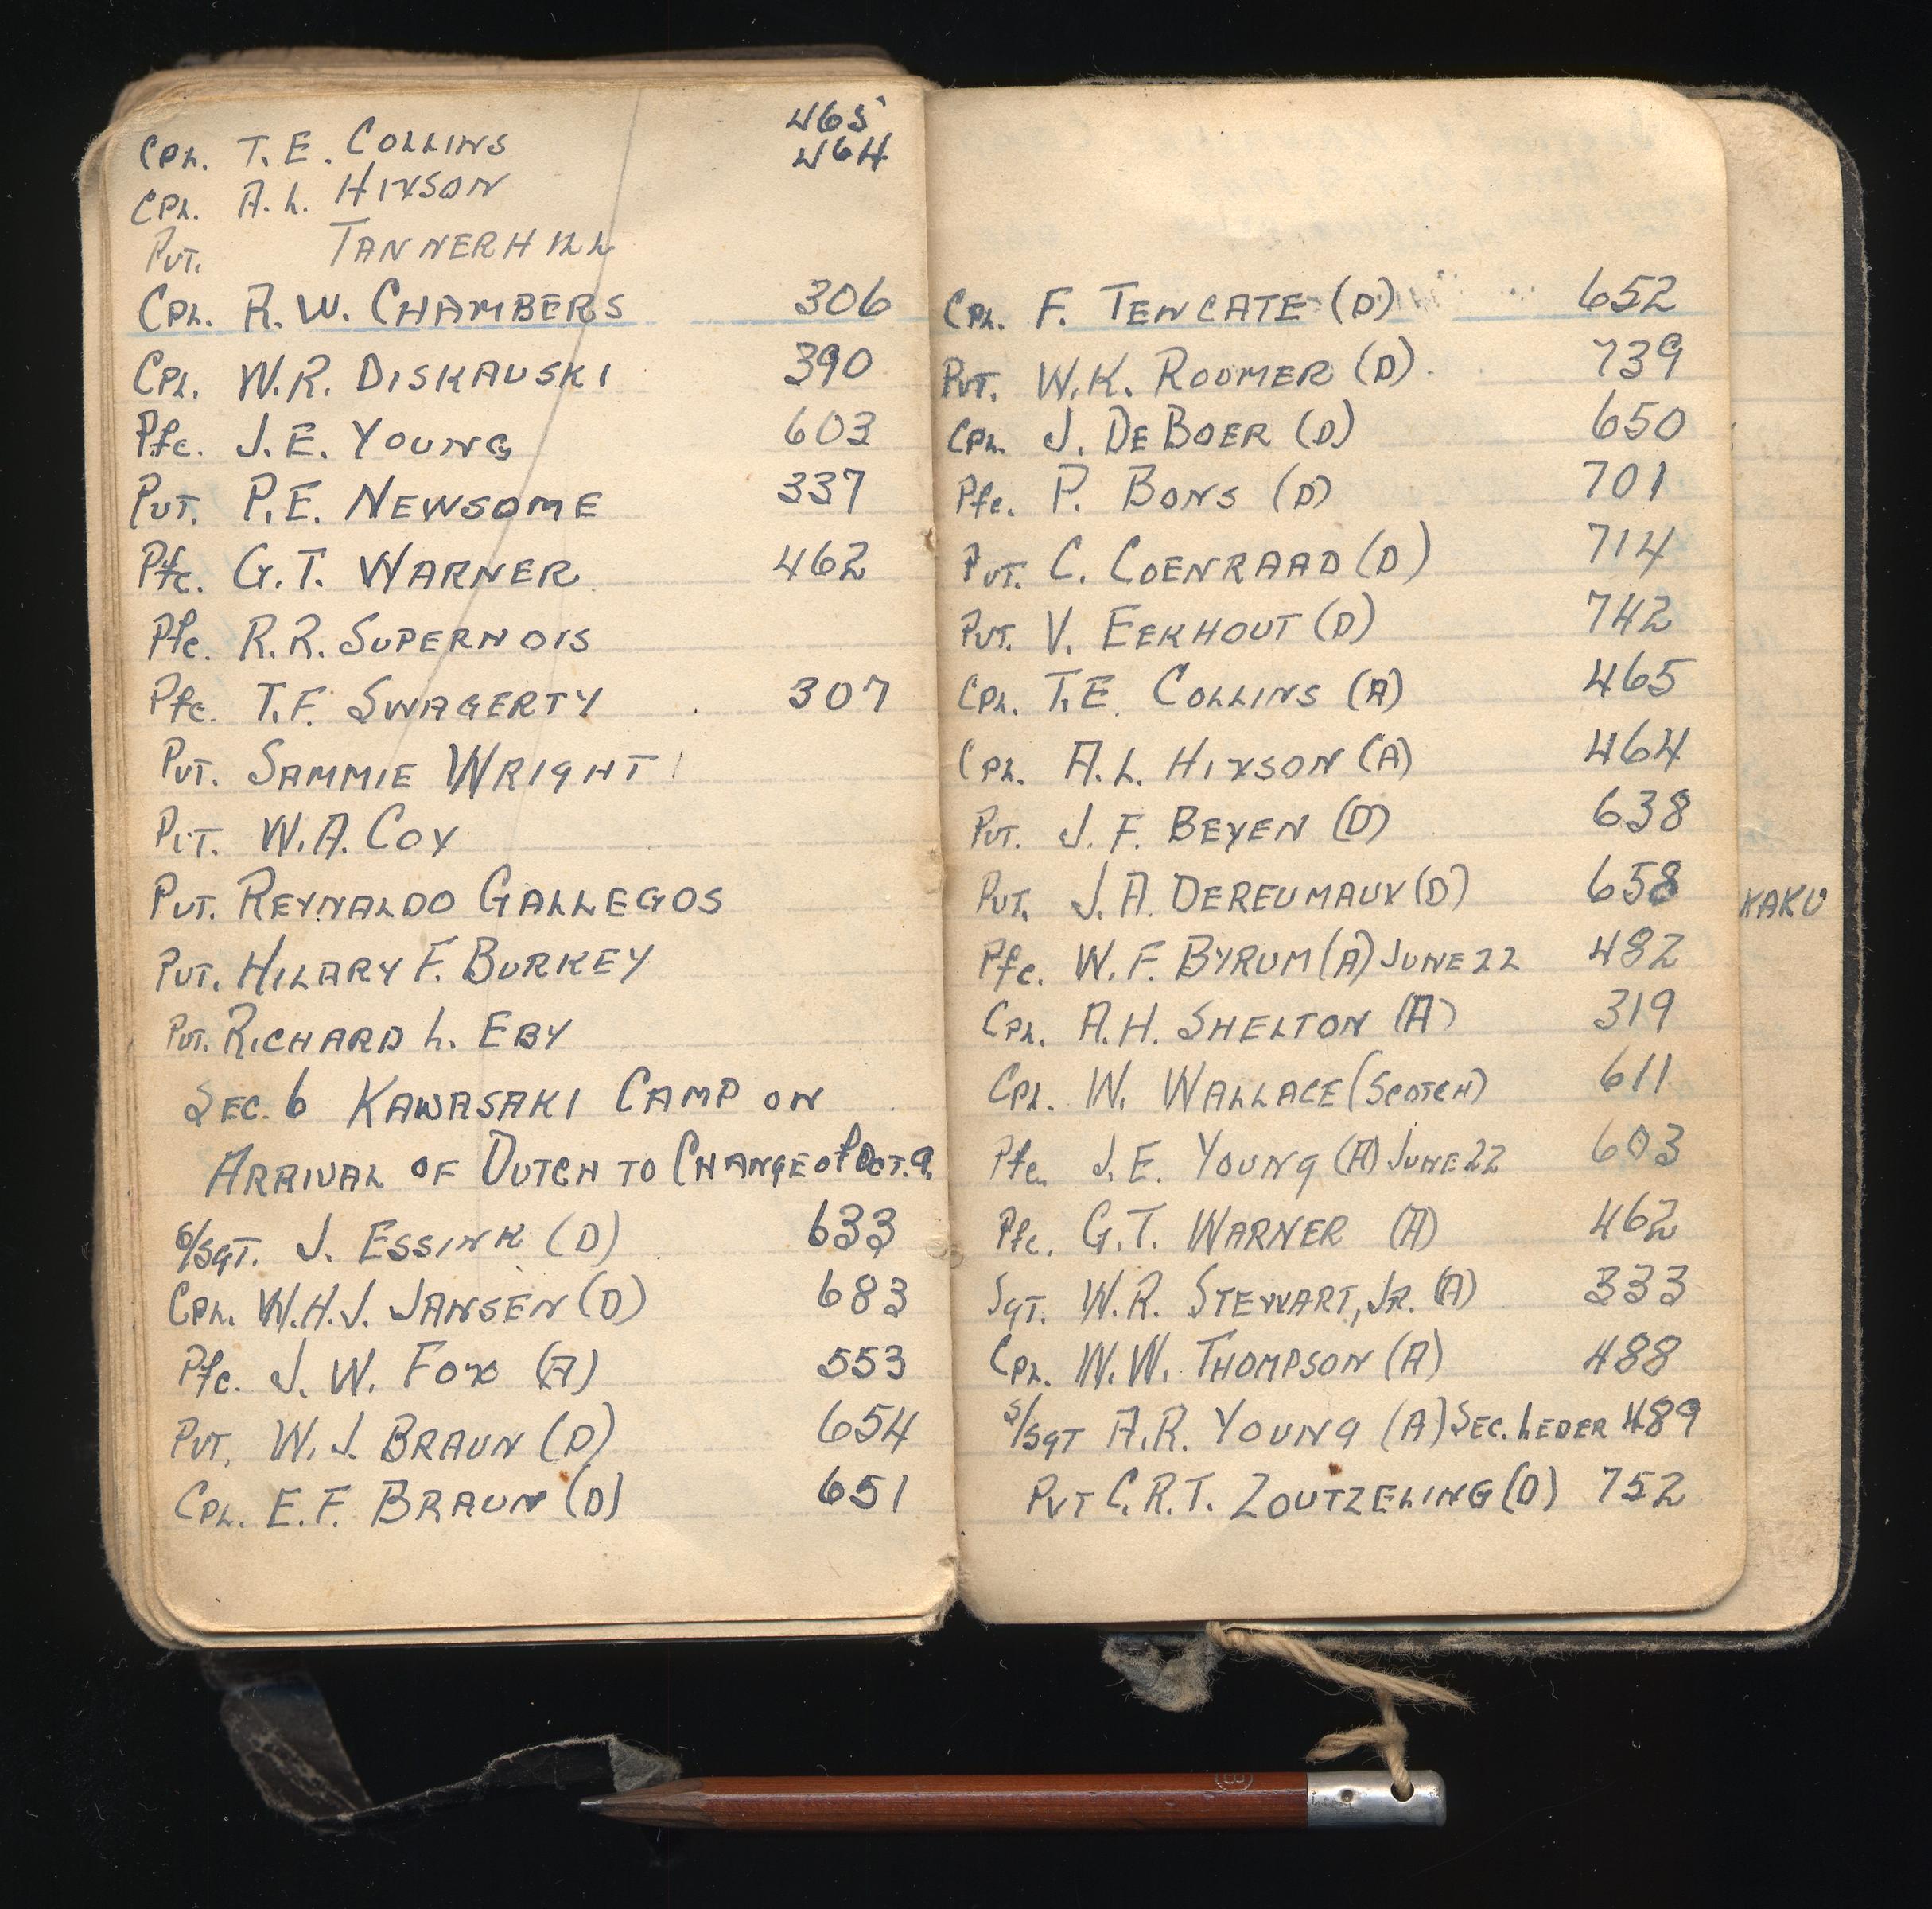 CPL. T.E. COLLINS 465
CPL. A.L. HIXSON 464
PVT. TANNERHILL
CPL. R.W. CHAMBERS 306
CPL. W.R. DISKAUSKI 390
Pfc. J.E. YOUNG 603
PVT. P.E. NEWSOME 337
Pfc. G.T. WARNER 462
Pfc. R.R. SUPERNOIS
Pfc. T.F. SWAGERTY 307
PVT. SAMMIE WRIGHT
PVT. W.A. COX
PVT. REYNALDO GALLEGOS
PVT. HILARY F. BURKEY
PVT. RICHARD L. EBY
SEC. 6 KAWASAKI CAMP ON
ARRIVAL OF DUTCH TO CHANGE of OCT. 9.
S/SGT. J. ESSINK (D) 633
CPL. W.H.J. JANSEN (D) 683
Pfc. J.W. FOX (A) 553
PVT. W.J. BRAUN (D) 654
CPL. E.F. BRAUN (D) 651
CPL. F. TENCATE (D) 652
PVT. W.K. ROOMER (D) 739
CPL. J. DE BOER (D) 650
Pfc. P. BONS (D) 701
PVT. C. COENRAAD (D) 714
PVT. V. EEKHOUT (D) 742
CPL. T.E. COLLINS (A) 465
CPL. A.L. HIXSON (A) 464
PVT. J.F. BEYEN (D) 638
PVT. J.A. DEREUMAUX (D) 658
KAKU
Pfc. W.F. BYRUM (A) JUNE 22 482
CPL. A.H. SHELTON (A) 319
CPL. W. WALLACE (SCOTCH) 611
Pfc. J.E. YOUNG (A) JUNE 22 603
Pfc. G.T. WARNER (A) 462
SGT. W.R. STEWART, JR. (A) 333
CPL. W.W. THOMPSON (A) 488
S/SGT A.R. YOUNG (A) SEC. LEDER 489
PVT C.R.T. ZOUTZELING (D) 752